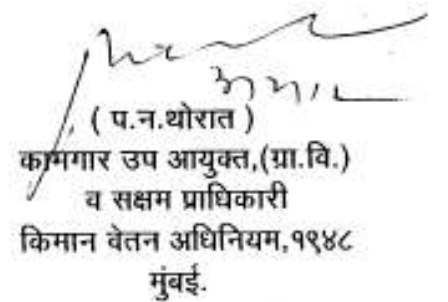 ( प.न.थोरात )
कामगार उप आयुक्त,(ग्रा.वि.)
व सक्षम प्राधिकारी
किमान वेतन अधिनियम,१९४८
मुंबई.